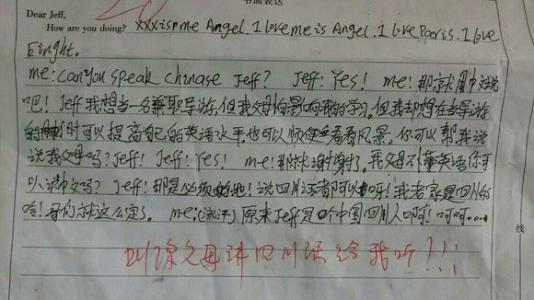 书面表达
Dear Jeff,
How are you doing? xxx is me Angel. I love me is Angel. I love Paris. I love
Einght.
me: can you speak chinase Jeff? Jeff: Yes! me: 那就用中文说
吧! Jeff 我想当一名兼职导游,但我父母怕影响我的学习。但我却想在当导游
的时可以提高自己的英语水平,也可以顺便看看风景。你可以帮我说
说我父母吗? Jeff! Jeff: Yes! me: 那就谢谢了。我父母不懂英语你可
以讲中文吗? Jeff: 那是必须的地! 说四川话者都可以呀! 我老家是四川的
哈! 哥们就这么定了。 me: 原来Jeff是个中国四川人啊! 呵呵....
叫你父母讲四川话给我听?!!!
线